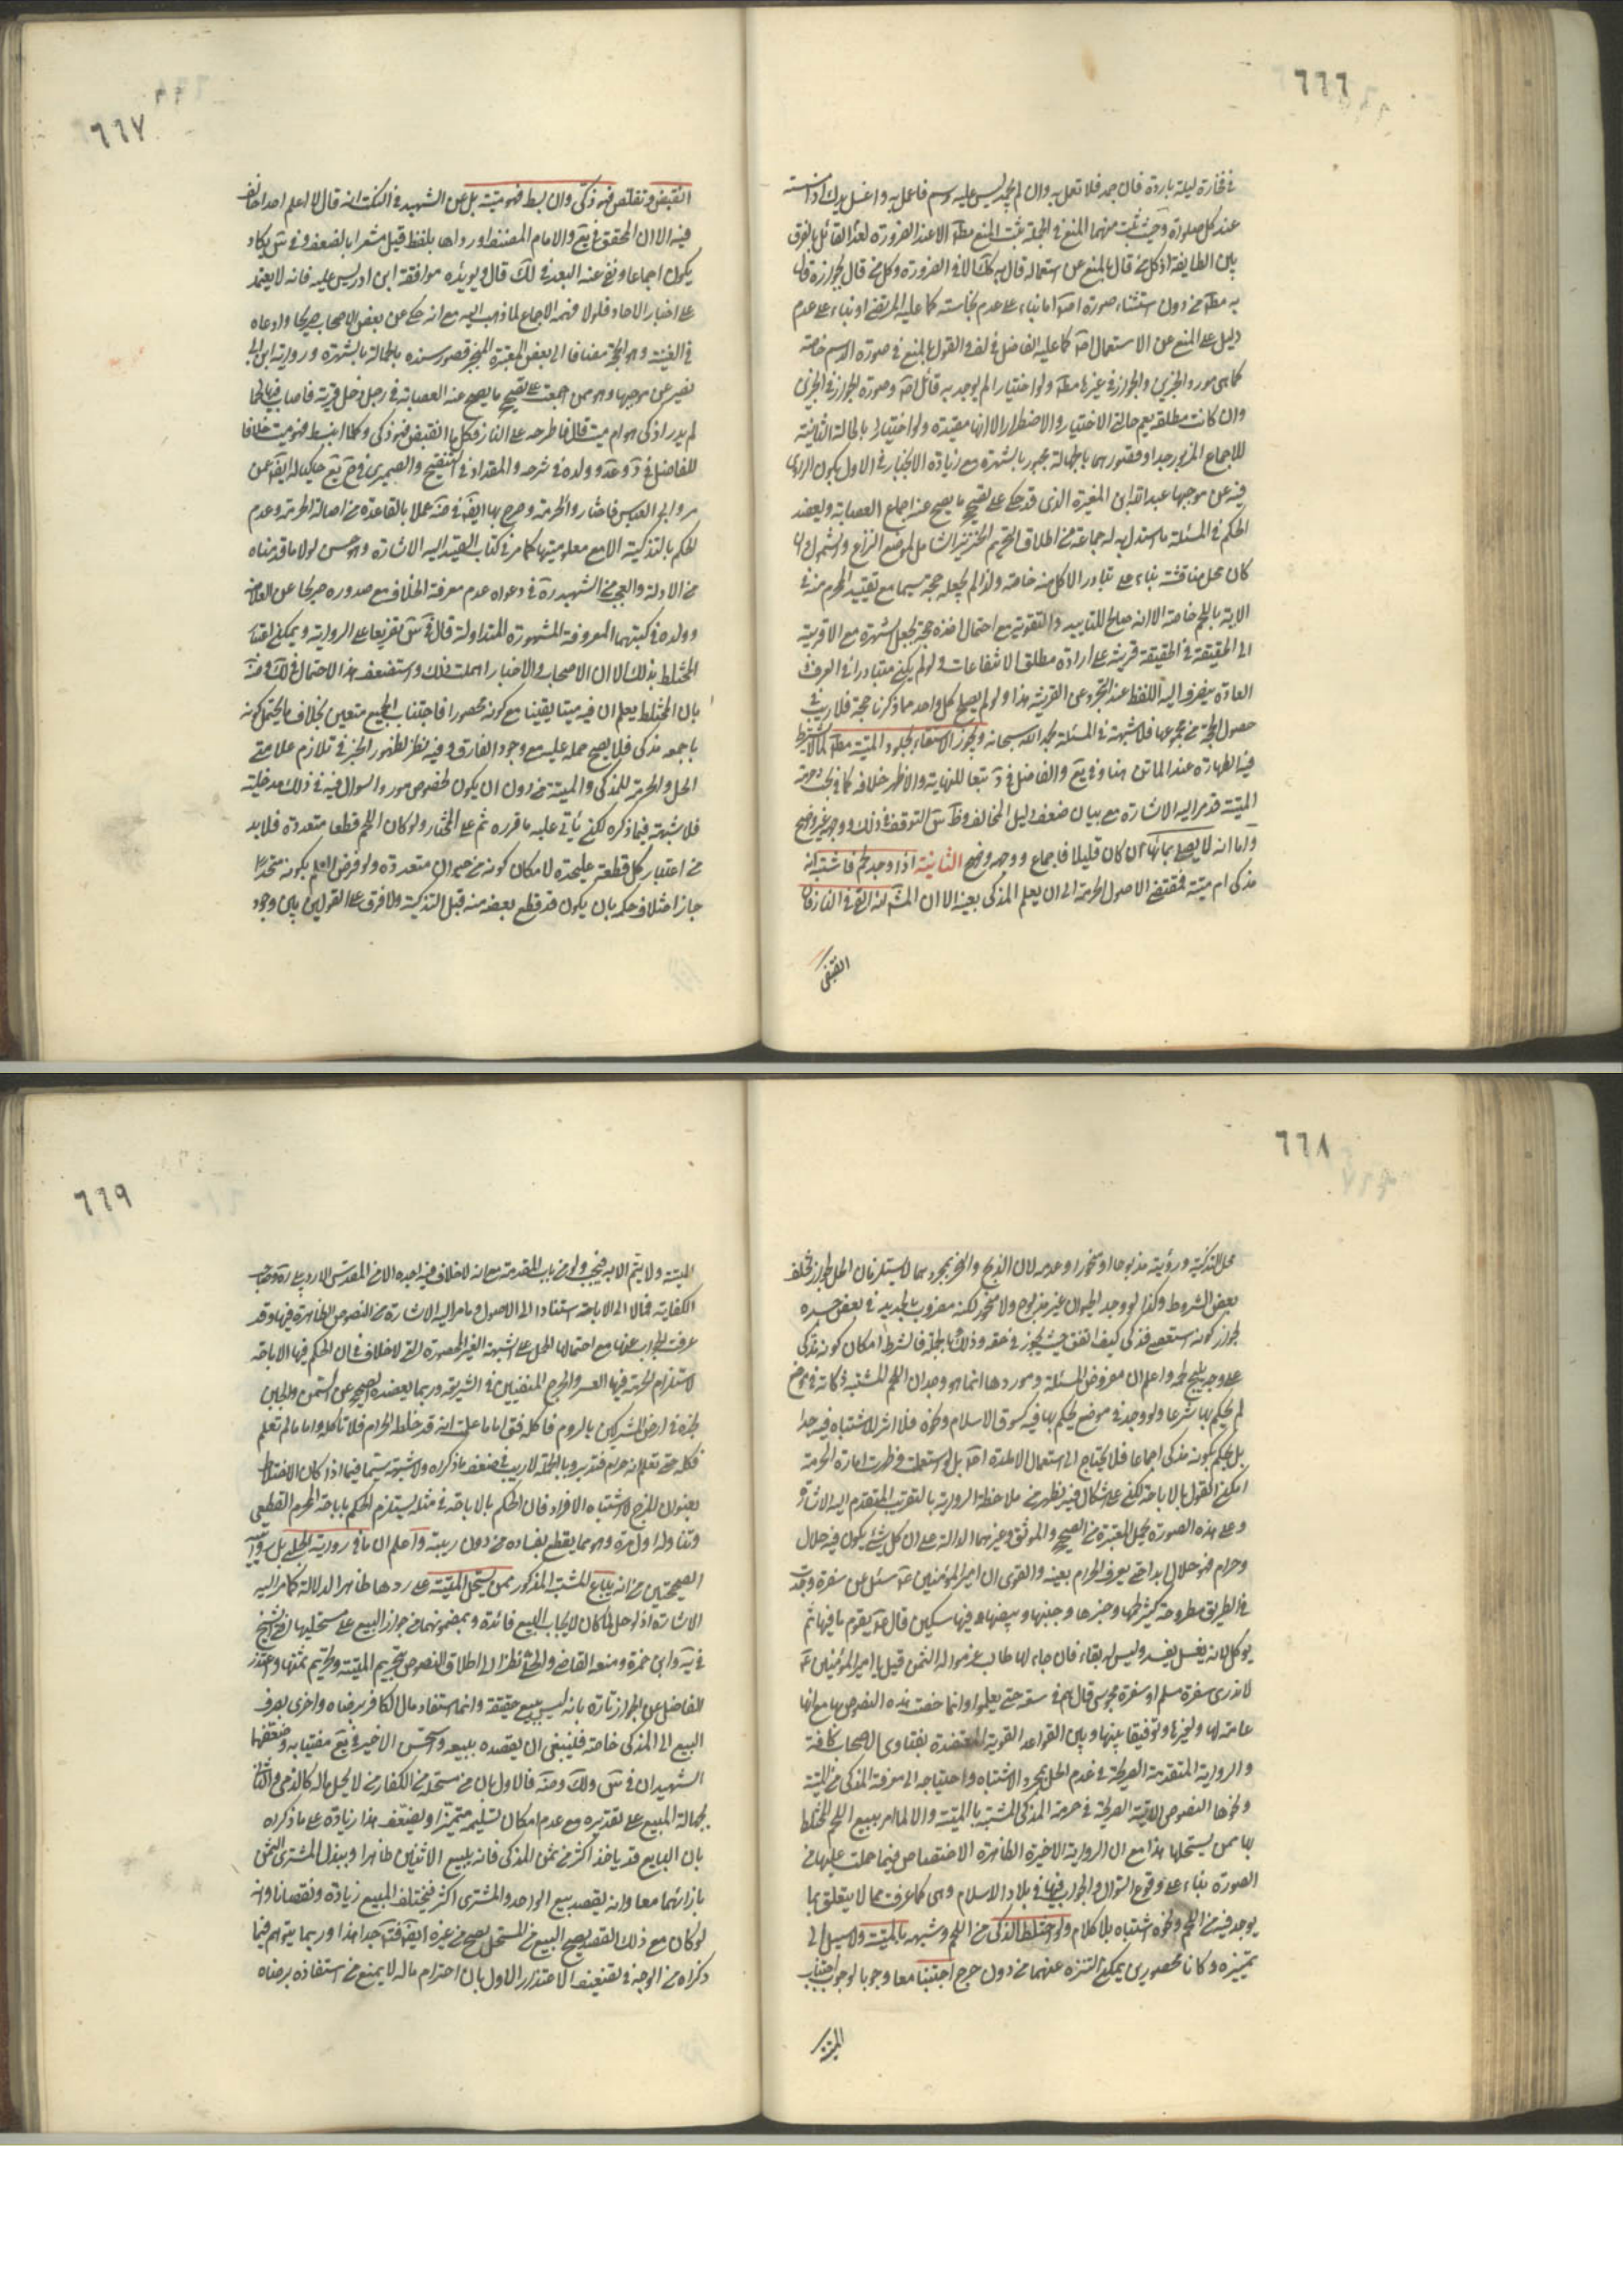 ٦٦٦
في فخارة ليلة باردة فان جمد فلا تعمل به وان لم يجمد ليس عليه دسم فاعمل به واغسل يدك اذا مسسته
عند كل صلوة وحيث ثبت منهما المنع في الجملة ثبت المنع مطلقا الا عند الضرورة لعدم القائل بالفرق
بين الطايفة اذ كل من قال بالمنع عن استعماله قال به كك الا في الضرورة وكل من قال بجوازه قال
به مط من دون استثناء صورة اصلا اما بناء على عدم نجاسته كما عليه المرتضى او بناء على عدم
دليل على المنع عن الاستعمال اصلا كما عليه الفاضل في لف والقول بالمنع في صورة الدسم خاصة
كما هي مورد الخبرين والجواز في غيرها مط ولو اختيارا لم يوجد به قائل اصلا وصورة الجواز في الخبرين
وان كانت مطلقة يعم حالتي الاختيار والاضطرار الا انها مقيدة ولو اختيارا بالحالة الثانية
للاجماع المزبور جدا وقصورهما بالجهالة مجبور بالشهرة مع زيادة الانجبار في الاول بكون الراوي
فيه عن موجبها عبد الله ابن المغيرة الذي قد حكي على تصحيح ما يصح عنه اجماع العصابة ويعضد
الحكم في المسئلة ما استدل به له جماعة من اطلاق تحريم الخنزير الشامل لموضع النزاع والشمول وان
كان محل مناقشة بناء على تبادر الاكل منه خاصة ولذا لم يجعله حجة سيما مع تقييد المحرم منه في
الاية باللحم خاصة الا انه صالح للتاييد والتقوية مع احتمال اخذه حجة بجعل الشهرة مع الاقربية
الى الحقيقة في الحقيقة قرينة على ارادة مطلق الانتفاعات ولو لم يكن متبادرا في العرف و
العادة ينصرف اليه اللفظ عند التجرد عن القرينة هذا ولو لم يصلح كل واحد مما ذكرنا حجة فلا ريب في
حصول الحجة من مجموعها فلا شبهة في المسئلة بحمد الله سبحانه ويجوز الاستقاء بجلود الميتة مط لما لا يشترط
فيه الطهارة عند الماتن هنا وفي يع والفاضل في د تبعا للنهاية والاظهر خلافه كما في بحث حرمة
الميتة قد مر اليه الاشارة مع بيان ضعف دليل المخالف وظ س التوقف في ذلك ووجهه غير واضح
واما انه لا يصلى بمائها ان كان قليلا فاجماع ووجهه واضح الثانية اذا وجد لحم فاشتبه انه
مذكى ام ميتة فمقتضى الاصول الحرمة الى ان يعلم المذكى بعينه الا ان المش انه القي في النار فان
انقبض
٦٦٧
انقبض وتقلص فهو ذكي وان انبسط فهو ميتة بل عن الشهيد في النكت انه قال لا اعلم احدا خالف
فيه الا ان المحقق في يع والامام المصنف اورداها بلفظ قيل مشعرا بالضعف وفي س يكاد
يكون اجماعا ونفى عنه البعد في لك قال ويؤيده موافقة ابن ادريس عليه فانه لا يعتمد
على اخبار الاحاد فلولا فهمه الاجماع لما ذهب اليه مع انه حكي عن بعض الاصحاب صريحا وادعاه
في الغنية وهو الحجة مضافا الى بعض المعتبرة المنجبر قصور سنده بالجهالة بالشهرة ورواية ابن ابي
نصير عن موجبها وهو ممن اجمعت على تصحيح ما يصح عنه العصابة في رجل دخل قرية فاصاب فيها لحما
لم يدر اذكى هو ام ميت قال فاطرحه على النار فكل ما انقبض فهو ذكي وكلما انبسط فهو ميت خلافا
للفاضل في د وعد وولده في شرحه والمقداد في التنقيح والصيمري في ح يع حاكيا له ايض عن
ابو العباس فاختاروا الحرمة وصرح بها ايض في ضه عملا بالقاعدة من اصالة الحرمة وعدم
الحكم بالتذكية الا مع معلوميتها كما مر في كتاب الصيد اليه الاشارة وهو حسن لولا ما قدمناه
من الادلة والعجب من الشهيد ره في دعواه عدم معرفة الخلاف مع صدوره صريحا عن الفاضل
وولده في كتبهما المعروفة المشهورة المتداولة قال في س تفريعا على الرواية ويمكن اعتبار
المختلط بذلك الا ان الاصحاب والاخبار اهملت ذلك واستضعف هذا الاحتمال في لك وضه
بان المختلط يعلم ان فيه ميتا يقينا مع كونه محصورا فاجتناب الجميع متعين بخلاف ما يحتمل كونه
باجمعه مذكى فلا يصح حمله عليه مع وجود الفارق وفيه نظر لظهور الخبر في تلازم علامتي
الحل والحرمة للمذكى والميتة من دون ان يكون لخصوص مورد السؤال فيه في ذلك مدخلية
فلا شبهة فيما ذكره لكن ياتي عليه ما قرره ثم على المختار ولو كان اللحم قطعا متعددة فلا بد
من اعتبار كل قطعة عليحدة لامكان كونه من حيوان متعددة ولو فرض العلم بكونه متحدا
جاز اختلاف حكمه بان يكون قد قطع بعضه منه قبل التذكية ولا فرق على القولين بين وجود
٦٦٨
محل التذكية ورؤيته مذبوحا او منحورا وعدمه لان الذبح والنحر بمجردهما لا يستلزمان الحل لجواز تخلف
بعض الشروط وكذا لو وجد الحيوان غير مذبوح ولا منحور لكنه مضروب بالحديد في بعض جسده
لجواز كونه استعصى فذكى كيف اتفق حيث يجوز في حقه وذلك وبالجملة فالشرط امكان كونه مذكى
على وجه يبيح لحمه واعلم ان مفروض المسئلة وموردها انما هو وجدان اللحم المشتبه ذكاته في موضع
لم يحكم بها شرعا ولو وجد في موضع يحكم بها فيه كسوق الاسلام ونحوه فلا اثر للاشتباه فيه جدا
بل يحكم بكونه مذكى اجماعا فلا يحتاج الى استعمال الامارة اصلا بل لو استعملت وظهرت امارة الحرمة
امكن القول بالاباحة لكن على اشكال فيه يظهر من ملاحظة الرواية بالتقريب المتقدم اليه الاشارة
وعلى هذه الصورة يحمل المعتبرة من الصحيح والموثق وغيرهما الدالة على ان كل شيء يكون فيه حلال
وحرام فهو حلال ابدا حتى يعرف الحرام بعينه والقوي ان امير المؤمنين ع سئل عن سفرة وجدت
في الطريق مطروحة كثير لحمها وخبزها وجبنها وبيضها وفيها سكين قال ع يقوم ما فيها ثم
يؤكل لانه يفسد وليس له بقاء فان جاء لها طالب غرموا له الثمن قيل يا امير المؤمنين ع
لا ندري سفرة مسلم او سفرة مجوسي قال هم في سعة حتى يعلموا وانما خصت هذه النصوص بها مع انها
عامة لها ولغيرها توفيقا بينها وبين القواعد القوية المعتضدة بفتاوى الاصحاب كافة
والرواية المتقدمة الصريحة في عدم الحل بمجرد الاشتباه واحتياجه الى معرفة المذكى من الميتة
ونحوها النصوص الاتية الصريحة في حرمة المذكى المشتبه بالميتة والا لما امر ببيع اللحم المختلط
بها ممن يستحلها هذا مع ان الرواية الاخيرة الظاهرة الاختصاص فيما حملت عليها من
الصورة بناء على وقوع السؤال والجواب فيها في بلاد الاسلام وهي كما عرفت مما لا يتعلق بما
يوجد فيه من اللحم ونحوه اشتباه بلا كلام ولو اختلط الذكي من اللحم وشبهه بالميتة ولا سبيل الى
تمييزه وكانا محصورين يمكن التنزه عنهما من دون حرج اجتنبا معا وجوبا لوجوب اجتناب
الميتة
٦٦٩
الميتة ولا يتم الا به فيجب ولو من باب المقدمة مع انه لا خلاف فيه اجده الا من المقدس الاردبيلي ره وصاحب
الكفاية فمالا الى الاباحة استنادا الى الاصول وما مر اليه الاشارة من النصوص الظاهرة فيها وقد
عرفت الجواب عنها مع احتمالها الحمل على الشبهة الغير المحصورة التي لا خلاف في ان الحكم فيها الاباحة
لاستلزام الحرمة فيها العسر والحرج المنفيين في الشريعة وربما يعضده الصحيح عن السمن والجبن
نجده في ارض المشركين بالروم فناكله فق اما ما علمت انه قد خلطه الحرام فلا تاكله واما ما لم تعلم
فكله حتى تعلم انه حرام فتدبر وبالجملة لا ريب في ضعف ما ذكراه ولا شبهة سيما فيما اذا كان الاختلاط
بعنوان المزج لا اشتباه الافراد فان الحكم بالاباحة في مثله يستلزم الحكم باباحة المحرم القطعي
وتناوله اول مرة وهو مما يقطع بفساده من دون ريبة واعلم ان ما في رواية الحلبي بل روايتيه
الصحيحتين من انه يباع المشتبه المذكور ممن يستحل الميتة على ردها ظاهر الدلالة كما مر اليه
الاشارة اذ لو حل لما كان لايجاب البيع فائدة وبمضمونهما من جواز البيع على مستحليها افتى الشيخ
في يه وابن حمزة ومنعه القاضي والحلي نظرا الى اطلاق النصوص بتحريم الميتة وتحريم ثمنها واعتذر
الفاضل عن الجواز تارة بانه ليس ببيع حقيقة وانما استنقاذ مال الكافر برضاه واخرى بصرف
البيع الى المذكى خاصة فلينبغي ان يقصده ببيعه واستحسن الاخير في يع مفتيا به وضعفهما
الشهيدان في س ولك وضه فالاول بان من مستحله من الكفار من لا يحل ماله كالذمي والثاني
بجهالة المبيع على تقديره مع عدم امكان تسليمه متميزا ويضعف هذا زيادة على ما ذكراه
بان البايع قد ياخذ اكثر من ثمن المذكى فانه يبيع الاثنين ظاهرا ويبذل المشتري الثمن
بازائهما معا وانه يقصد بيع الواحد والمشتري اكثر فيختلف المبيع زيادة ونقصانا وانه
لو كان مع ذلك القصد يصح البيع من المستحل يصح من غيره ايض فت جدا هذا وربما يتوهم فيما
ذكراه من الوجه في تضعيف الاعتذار الاول بان احترام ماله لا يمنع من استنقاذه برضاه